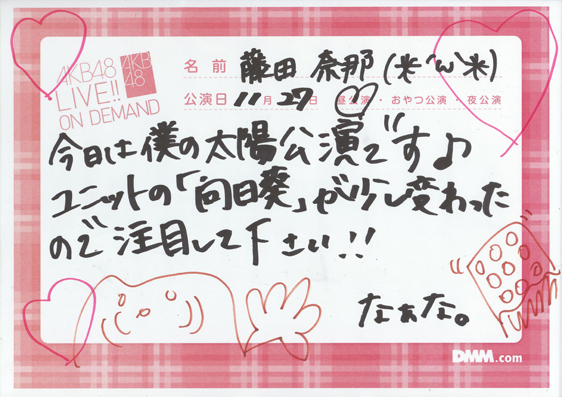 AKB48
LIVE!!
ON DEMAND
AKB
48
名前 藤田 奈那 (*´ω`*)
公演日 11月27日 昼公演・おやつ公演・夜公演
今日は僕の太陽公演です♪
ユニットの「向日葵」が少し変わった
ので注目して下さい!!
なぁな。
DMM.com